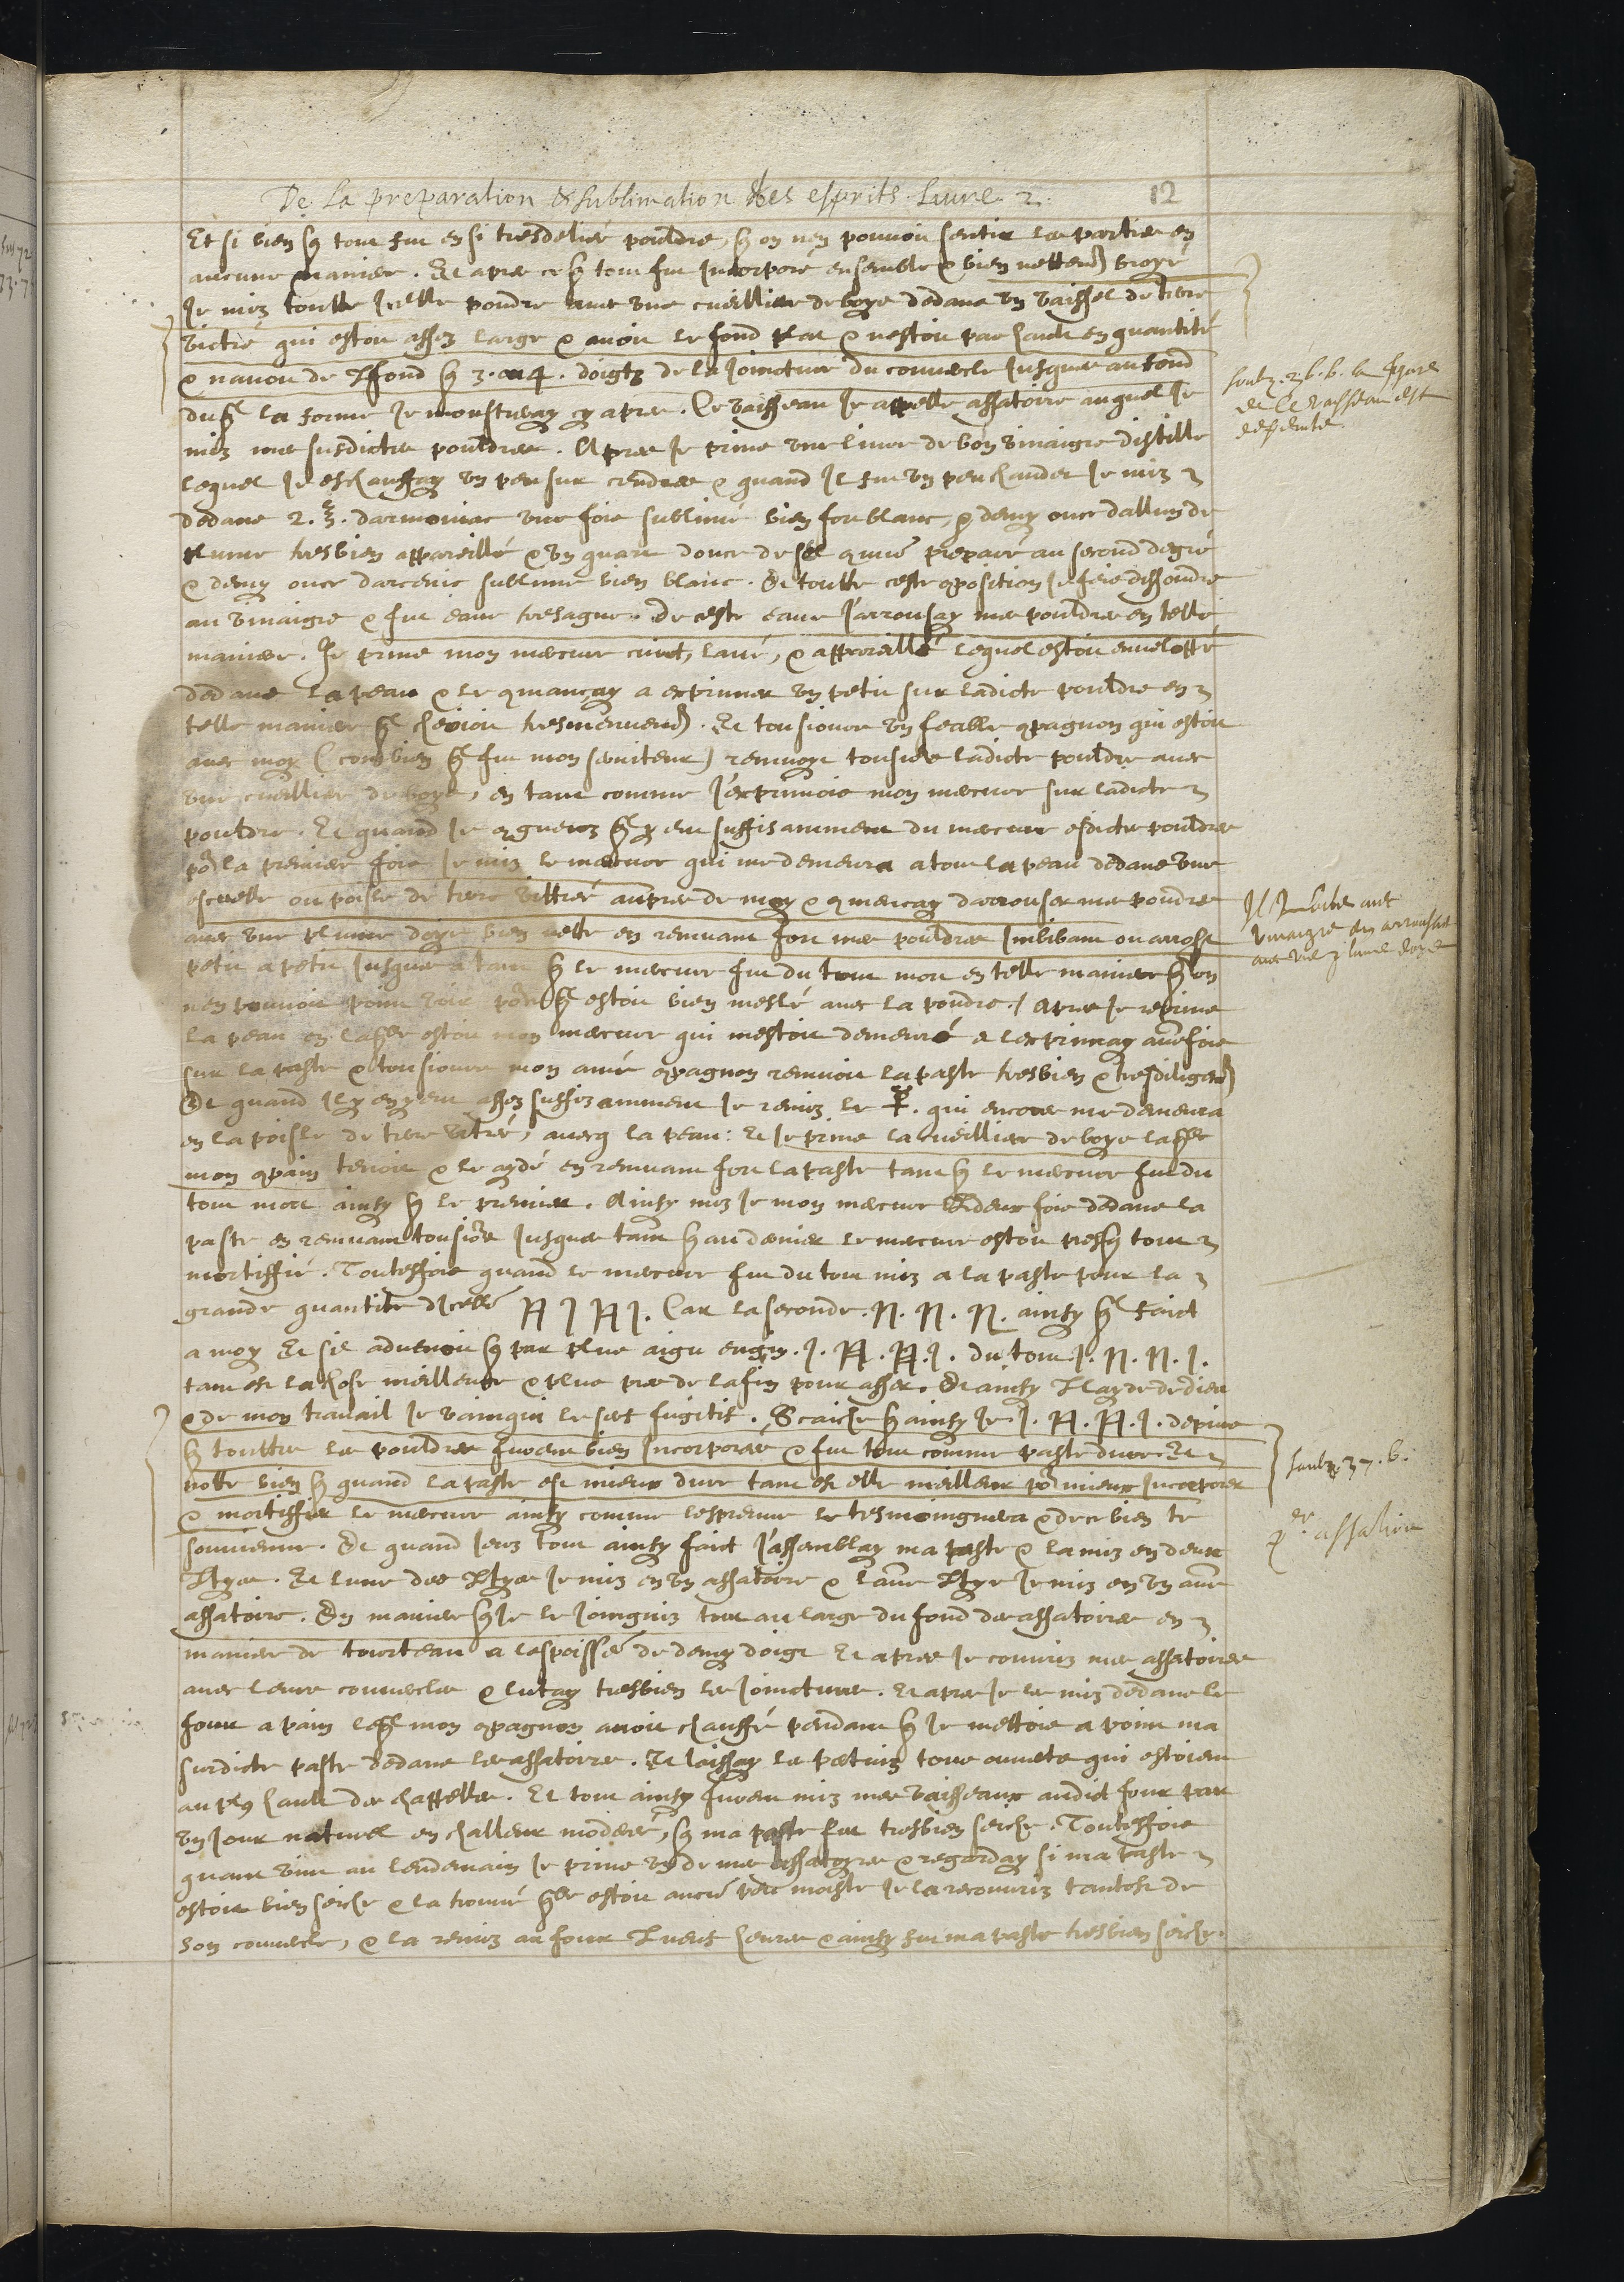 De la preparation & sublimation des esprits. Livre 2. 12
Et si bien q̃ tout fut en si tresdeliée pouldre, q̃ on nen pouvoit sentir les parties en
aucune maniere. Et apres ce q̃ tout fut incorporé ensemble & bien nettem̃ broyé
Je mis toutte icelle poudre avec une cueilliere de boys dedans un vaissel de terre
victré qui estoit assez large & avoit le fond plat & nestoit pas hault en quantité
& navoit de fond q̃ 3. ou 4. doigtz de la joincture du couvercle jusques au fond
duq̃l la forme je monstreray cy apres. Ce vaisseau je appelle assatoire auquel je
mis mes susdictes pouldres. Apres je prins une livre de bon vinaigre distille
lequel je eschauffay un peu sur cendres & quand il fut un peu chauder je mis
dedans 2. ℥. darmoniac une fois sublimé bien fort blanc, & demy once dallun de
plume tresbien appareillé & un quart donce de sel qmun preparé au second degré
& demy once darcenic sublimé bien blanc. Et toutte ceste qposition je feis dissoudre
au vinaigre & fut eaue tresague. De ceste eaue j'arrousay mes pouldres en telle
maniere. Je prins mon mercure cuict, lavé, & appareillé lequel estoit enveloppé
dedans la peau & le qmançay a exprimer un petit sur ladicte pouldre en
telle maniere q̃l cheoit tresmenuem̃. Et tousiours un feable qpagnon qui estoit
avec moy (combien q̃l fut mon serviteur) remuoyt tousiors ladicte pouldre avec
une cueilliere de boys, en tant comme j'exprimois mon mercure sur ladicte
pouldre. Et quand je qgneuz q̃l y eut suffisamment du mercure esdictes pouldres
por la premiere fois je mis le mercure qui me demeura a tout la peau dedans une
escuelle ou poisle de terre vittrée aupres de moy & qmençay darrouser mes poudres
avec une plume doye bien nette en remuant fort mes pouldres imbibant ou arrosse
petit a petit jusques a tant q̃ le mercure fut du tout mort en telle maniere q̃ on
nen pouvoit point voir por q̃l estoit bien meslé avec la poudre. / Apres je reprins
la peau en laq̃lle estoit mon mercure qui mestoit demeuré & lexprimay autrefois
sur la paste & tousiours mon amé qpagnon remuoit la paste tresbien & tresdiligem̃
Et quand il y en y eut assez suffisamment je remis le ☿. qui encore me demeura
en la poisle de terre vitrée, avecq la peau: Et je prins la cueilliere de boys laq̃lle
mon qpain tenoit & le aydé en remuant fort la paste tant q̃ le mercure fut du
tout mort ainsy q̃ le premier. Ainsy mis je mon mercure deux fois dedans la
paste en remuant tousiors jusques tant q̃ au dernier le mercure estoit presq̃ tout
mortiffié. Touteffois quand le mercure fut du tout mis a la paste pour la
grande quantite dicelle
Car la seconde. ainsy q̃l faict
a moy Et sil advenoit q̃ par plus aigu engin. du tout
tant est la chose meilleure & plus pres de la fin pour assez. Et ainsy layde de dieu
& de mon travail je vainquis le serf fugitif. Scaiche q̃ ainsy je
q̃ touttes les pouldres furent bien incorporées & fut tout comme paste dure Et
notte bien q̃ quand la paste est mieux dure tant est elle meilleur por mieux incorporer
& mortiffier le mercure ainsy comme lespreuve le tesmoingnera & de ce bien te
souvienne. Et quand jeuz tout ainsy faict j'assemblay ma paste & la mis en deux
Et lune des je mis en un assatoire & lautre je mis en un autre
assatoire. En maniere q̃ je le joingnis tout au large du fond des assatoires en
maniere de tourteau a lespoisse de demy doigt Et apres je couvris mes assatoires
avec leurs couvercles & lutay tresbien les joinctures. Et apres je les mis dedans le
four a pain leq̃l mon qpagnon avoit chauffé pendant q̃ je mettois a point ma
susdicte paste dedans les assatoires. Et laissay les pertuis tous ouvertz qui estoient
au plus hault des chappelles. Et tout ainsy furent mis mes vaisseaux audict four par
un jour naturel en challeur moderée, q̃ ma paste fut tresbien seiche. Touteffois
quant vint au lendemain je prins un de mes assatoyres & regarday si ma paste
estoit bien seiche & la trouvé q̃lle estoit aucun peu moiste je la recouvris tantost de
son couvercle, & la remis au four heures & ainsy fut ma paste tresbien seiche.
fueillz. 26. b. la figure
de ce vaisseau est
depeinte.
Il imbibe avec
vinaigre en arrousant
avec une plume doye
fueillz. 37. b.
p.er assation